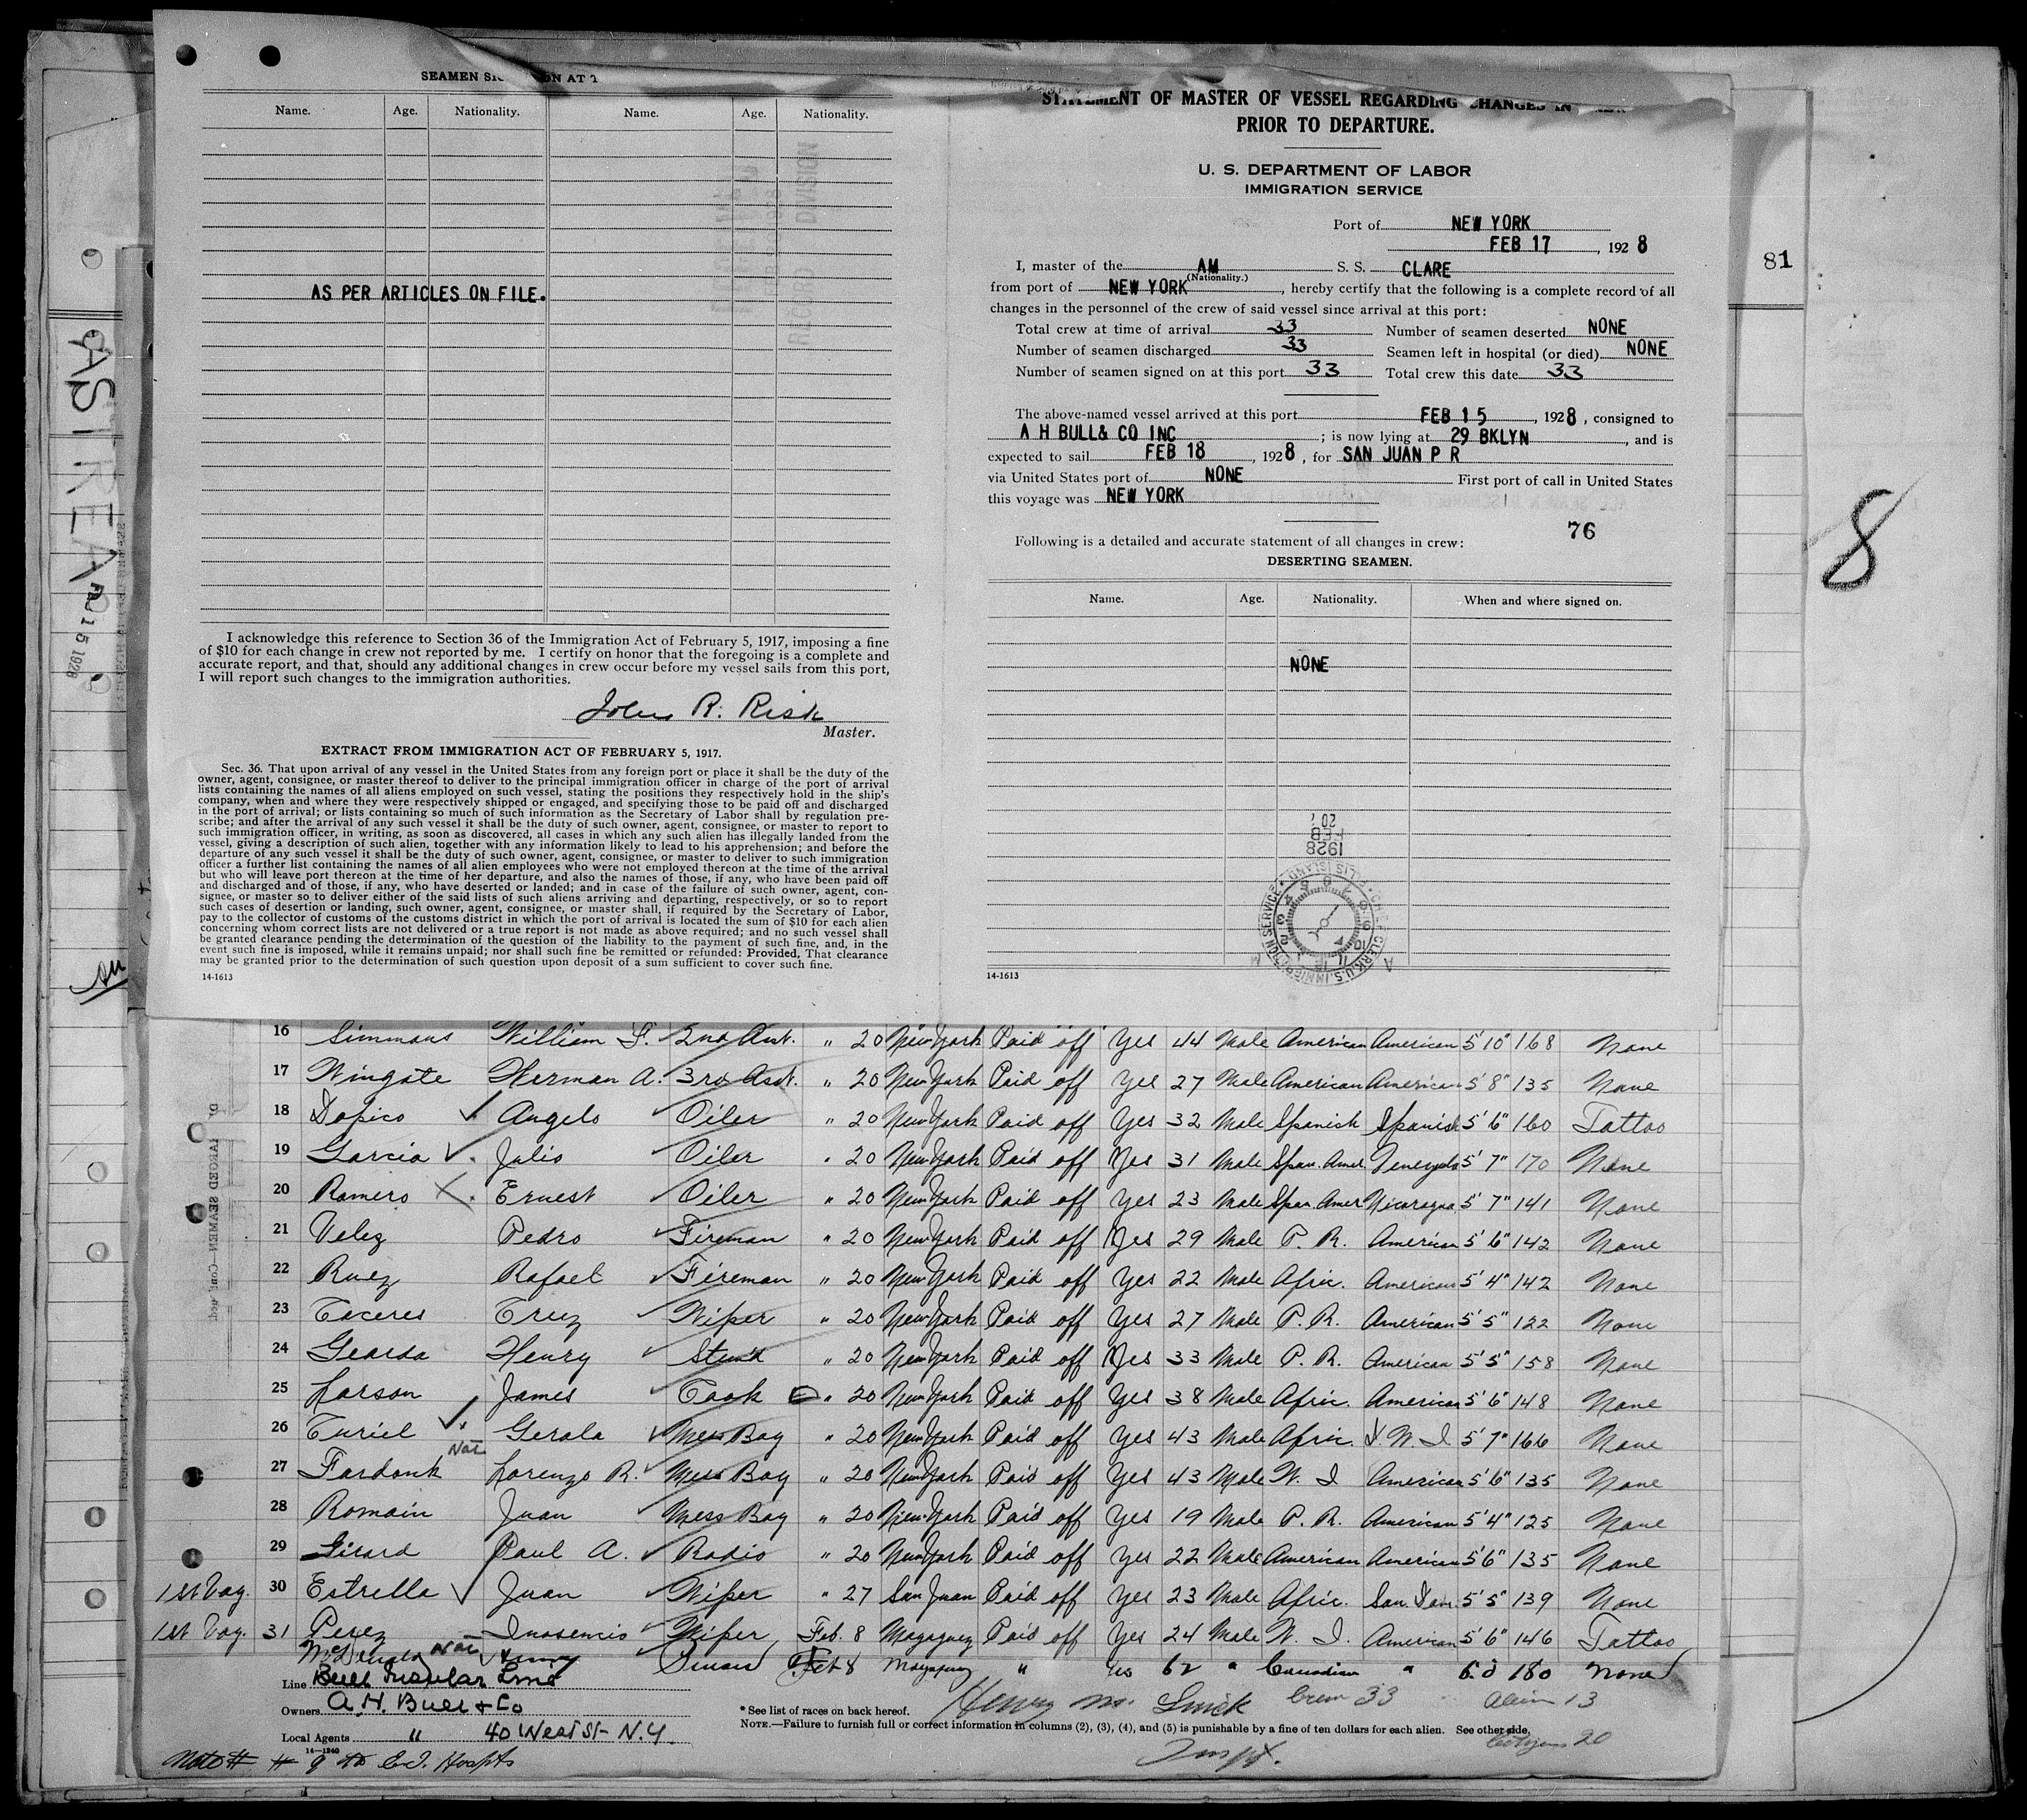 SEAMEN
Name. Age. Nationality. Name. Age. Nationality.
AS PER ARTICLES ON FILE.
I acknowledge this reference to Section 36 of the Immigration Act of February 5, 1917, imposing a fine
of $10 for each change in crew not reported by me. I certify on honor that the foregoing is a complete and
accurate report, and that, should any additional changes in crew occur before my vessel sails from this port,
I will report such changes to the immigration authorities.
John R. Risk
Master.
EXTRACT FROM IMMIGRATION ACT OF FEBRUARY 5, 1917.
Sec. 36. That upon arrival of any vessel in the United States from any foreign port or place it shall be the duty of the
owner, agent, consignee, or master thereof to deliver to the principal immigration officer in charge of the port of arrival
lists containing the names of all aliens employed on such vessel, stating the positions they respectively hold in the ship's
company, when and where they were respectively shipped or engaged, and specifying those to be paid off and discharged
in the port of arrival; or lists containing so much of such information as the Secretary of Labor shall by regulation pre-
scribe; and after the arrival of any such vessel it shall be the duty of such owner, agent, consignee, or master to report to
such immigration officer, in writing, as soon as discovered, all cases in which any such alien has illegally landed from the
vessel, giving a description of such alien, together with any information likely to lead to his apprehension; and before the
departure of any such vessel it shall be the duty of such owner, agent, consignee, or master to deliver to such immigration
officer a further list containing the names of all alien employees who were not employed thereon at the time of the arrival
but who will leave port thereon at the time of her departure, and also the names of those, if any, who have been paid off
and discharged and of those, if any, who have deserted or landed; and in case of the failure of such owner, agent, con-
signee, or master so to deliver either of the said lists of such aliens arriving and departing, respectively, or so to report
such cases of desertion or landing, such owner, agent, consignee, or master shall, if required by the Secretary of Labor,
pay to the collector of customs of the customs district in which the port of arrival is located the sum of $10 for each alien
concerning whom correct lists are not delivered or a true report is not made as above required; and no such vessel shall
be granted clearance pending the determination of the question of the liability to the payment of such fine, and, in the
event such fine is imposed, while it remains unpaid; nor shall such fine be remitted or refunded: Provided, That clearance
may be granted prior to the determination of such question upon deposit of a sum sufficient to cover such fine.
14-1613
STATEMENT OF MASTER OF VESSEL REGARDING CHANGES IN
PRIOR TO DEPARTURE.
U. S. DEPARTMENT OF LABOR
IMMIGRATION SERVICE
Port of NEW YORK
FEB 17, 1928
I, master of the AM S. S. CLARE
(Nationality.)
from port of NEW YORK, hereby certify that the following is a complete record of all
changes in the personnel of the crew of said vessel since arrival at this port:
Total crew at time of arrival 33 Number of seamen deserted NONE
Number of seamen discharged 33 Seamen left in hospital (or died) NONE
Number of seamen signed on at this port 33 Total crew this date 33
The above-named vessel arrived at this port FEB 15, 1928, consigned to
A H BULL& CO INC; is now lying at 29 BKLYN, and is
expected to sail FEB 18, 1928, for SAN JUAN P R
via United States port of NONE First port of call in United States
this voyage was NEW YORK
76
Following is a detailed and accurate statement of all changes in crew:
DESERTING SEAMEN.
Name. Age. Nationality. When and where signed on.
NONE
FEB
1928
14-1613
81
8
ASTREA
15 1928
16 Simmons William 2nd Asst. " 20 New York Paid off Yes 44 Male American American 5'10" 168 None
17 Wingate Herman A. 3rd Asst. " 20 New York Paid off Yes 27 Male American American 5'8" 135 None
18 Dopico Angelo Oiler " 20 New York Paid off Yes 32 Male Spanish Spanish 5'6" 160 Tattoo
19 Garcia Julio Oiler " 20 New York Paid off Yes 31 Male Span. Amer. 5'7" 170 None
20 Romero Ernest Oiler " 20 New York Paid off Yes 23 Male Span. Amer Nicaragua 5'7" 141 None
21 Velez Pedro Fireman " 20 New York Paid off Yes 29 Male P. R. American 5'6" 142 None
22 Ruez Rafael Fireman " 20 New York Paid off Yes 22 Male Afric. American 5'4" 142 None
23 Caceres Cruz Wiper " 20 New York Paid off Yes 27 Male P. R. American 5'5" 122 None
24 Gearda Henry Stew'd " 20 New York Paid off Yes 33 Male P. R. American 5'5" 158 None
25 Larson James Cook " 20 New York Paid off Yes 38 Male Afric. American 5'6" 148 None
26 Curiel Gerald Mess Boy " 20 New York Paid off Yes 43 Male Afric. D. W. I 5'7" 166 None
27 Fardonk Lorenzo R. Mess Boy " 20 New York Paid off Yes 43 Male W. I American 5'6" 135 None
28 Romain Juan Mess Boy " 20 New York Paid off Yes 19 Male P. R. American 5'4" 125 None
29 Girard Paul A. Radio " 20 New York Paid off Yes 22 Male American American 5'6" 135 None
1st Voy. 30 Estrella Juan Wiper " 27 San Juan Paid off Yes 23 Male Afric. San Dom. 5'5" 139 None
1st Voy. 31 Perez Inosencio Wiper Feb. 8 Mayaguez Paid off Yes 24 Male W. I. American 5'6" 146 Tattoo
McDonald Henry Feb 8 Mayaguez " Yes 62 " Canadian " 6.0 180 None
Line Bull Insular Line
Owners A. H. Bull & Co
Local Agents " 40 West St- N.Y.
14-1240
* See list of races on back hereof.
Crew 33 Alien 13
NOTE.—Failure to furnish full or correct information in columns (2), (3), (4), and (5) is punishable by a fine of ten dollars for each alien. See other side.
Citizens 20